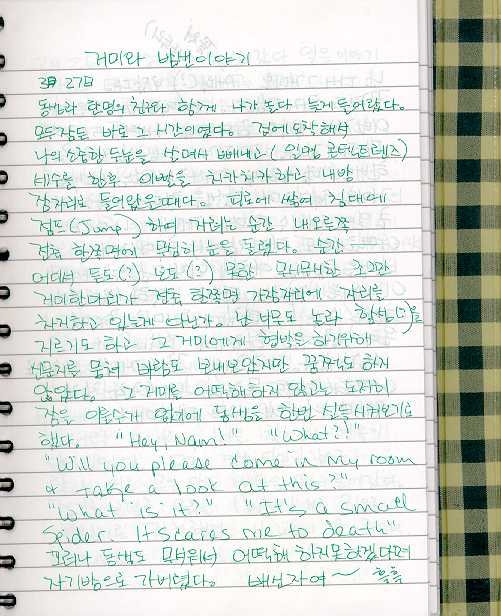 거미와 밤변이야기
3月 27日
동생과 한명의 친구와 함께 나가 놀다 늦게 들어왔다.
모두 잠든 바로 그 시간이였다. 집에 도착해서
나의 소중한 두눈을 살며시 빼내고 (일명 콘텍트렌즈)
세수를 한후 이빨을 치카치카하고 내방
잠자리로 들어왔을때다. 피로에 쌓여 침대에
점프(Jump)하여 자려는 순간, 내 오른쪽
접촉 한쪽면에 무심히 눈을 돌렸다. 순간
어디서 듣도(?) 보도(?) 못한 무시무시한 조그만
거미한마리가 접촉 한쪽면 가장자리에 자리를
차지하고 있는게 아닌가. 난 너무도 놀라 함성(?)을
지르기도 하고 그 거미에게 협박을 하기위해
신문지를 뭉쳐 바람도 보내보았지만 꿈쩍도 하지
않았다. 그 거미를 어떡해하지 않고는 도저히
잠을 이룰수가 없기에 동생을 한번 실득시켜보기로
했다. "Hey, Nam!" "What?!"
"Will you please come in my room
& take a look at this?"
"What is it?" "It's a small
Spider. It scares me to death"
그러나 동생도 무서워서 어떡해 하지못하겠다며
자기방으로 가버렸다. 배신자여~ 흑흑